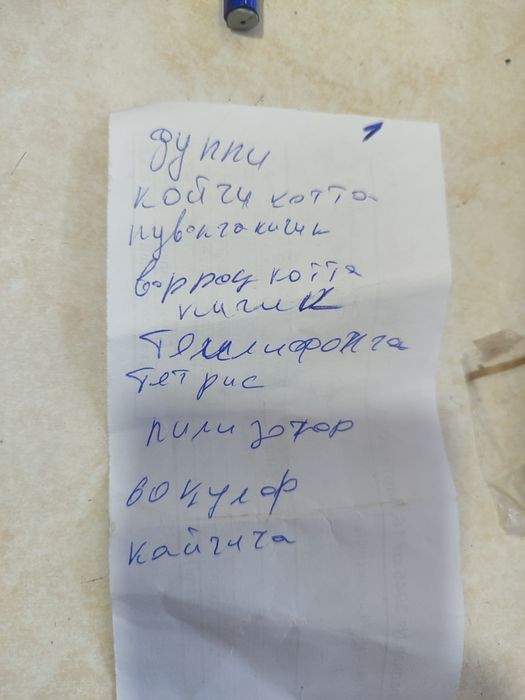 дуппи
койчи котта
пувакчакичик
варрац котта
кичик
Телифонча
тетрис
пилизатор
вакулф
кайчича